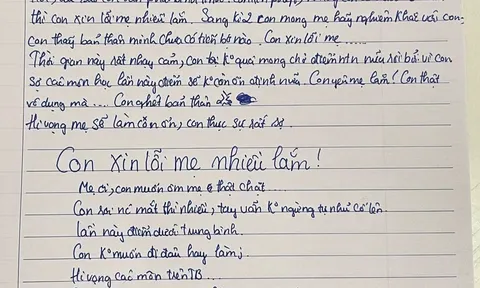 thì con xin lỗi mẹ nhiều lắm. Sang kì 2 con mong mẹ hãy nghiêm khắc với con.
Con thấy bản thân mình chưa có tiến bộ nào. Con xin lỗi mẹ
Thời gian này rất nhạy cảm, con ko quá mong chờ điểm ntn nữa rồi bởi vì con
sợ các môn học lần này điểm số ko còn ổn định nữa. Con yêu mẹ lắm! Con thật
vô dụng mà ... Con ghét bản thân
Hi vọng mẹ sẽ làm con ơn, con thực sự rất sợ.
Con xin lỗi mẹ nhiều lắm!
Mẹ ơi, con muốn ôm mẹ thật chặt
Con rơi nc mắt thì nhiều, tay vẫn ko ngừng tự nhủ cố lên.
lần này điểm dưới trung bình.
Con ko muốn đi đâu hay làm j
Hi vọng các môn trên TB...